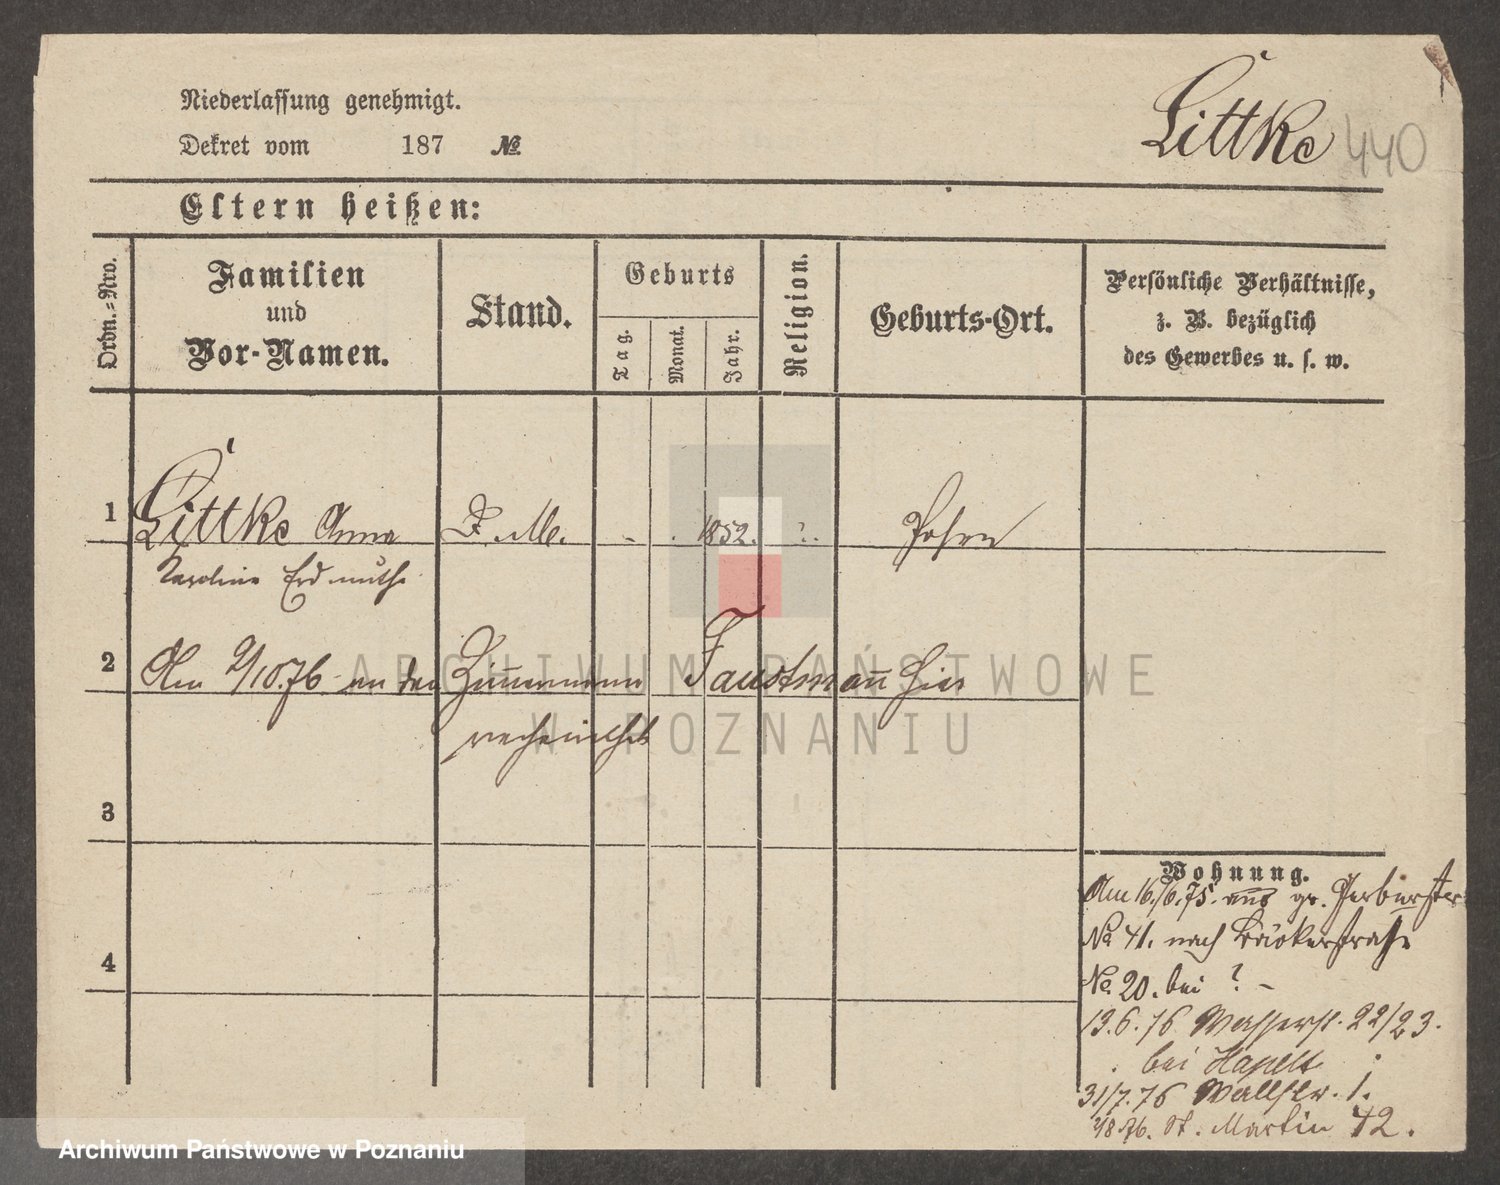 Niederlassung genehmigt.
Dekret vom 187 №
Littke 440
Eltern heißen:
Ordn.-Nro.
Familien
und
Vor-Namen.
Stand.
Geburts
Tag.
Monat.
Jahr.
Religion.
Geburts-Ort.
Persönliche Verhältnisse,
z. B. bezüglich
des Gewerbes u. s. w.
1 Littke Anna D. M. - . 1852. ?. Posen
Karoline Erdmuthe
2 Am 9/10.76 an den Zimmermann Faustmann hier
verheirathet
3
4
Wohnung.
Am 16./6.75. aus gr. Gerberstr
No 41. nach Bäckerstraße
No. 20. bei ? -
13.6.76 Wasserstr. 22/23.
bei
31/7.76 Wallstr. 1.
St. Martin 42.
ARCHIWUM PAŃSTWOWE
W POZNANIU
Archiwum Państwowe w Poznaniu